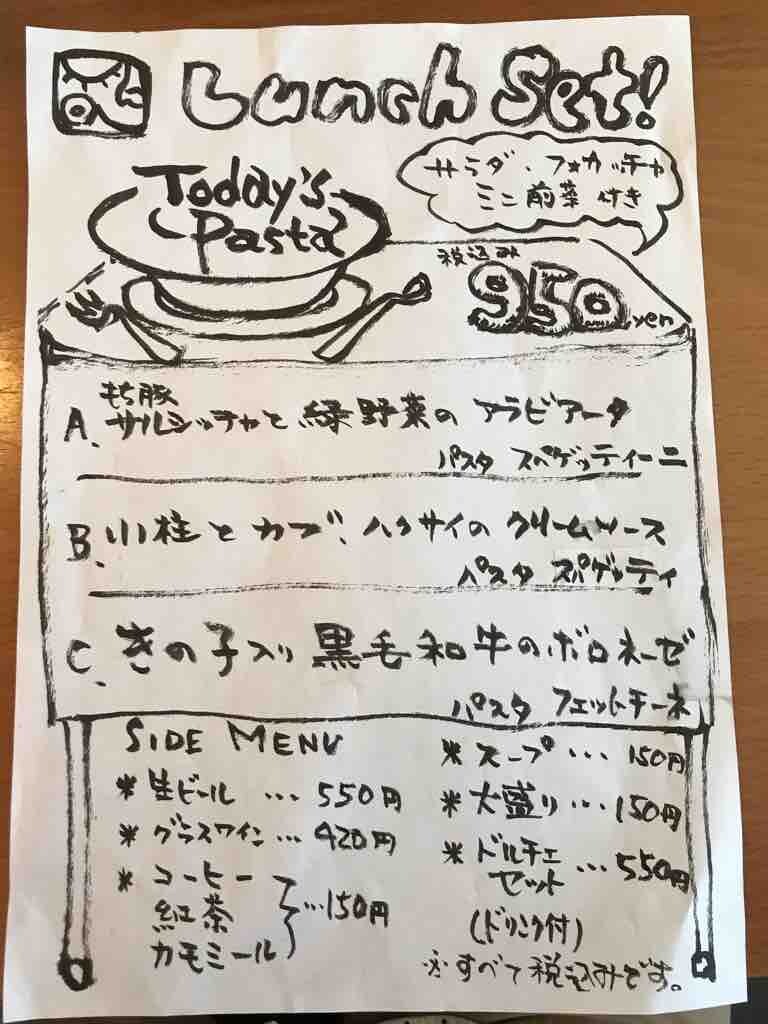 Lunch Set!
サラダ、フォカッチャ
ミニ前菜付き
Today's
Pasta
税込み
950yen
もち豚
A、サルシッチャと緑野菜のアラビアータ
パスタ スパゲッティーニ
B、小柱とカブ、ハクサイのクリームソース
パスタ スパゲッティ
C、きの子入り黒毛和牛のボロネーゼ
パスタ フェットチーネ
SIDE MENU
*生ビール … 550円
*グラスワイン … 420円
*コーヒー
紅茶
カモミール
…150円
*スープ … 150円
*大盛り … 150円
*ドルチェ
セット … 550円
(ドリンク付)
※すべて税込みです。